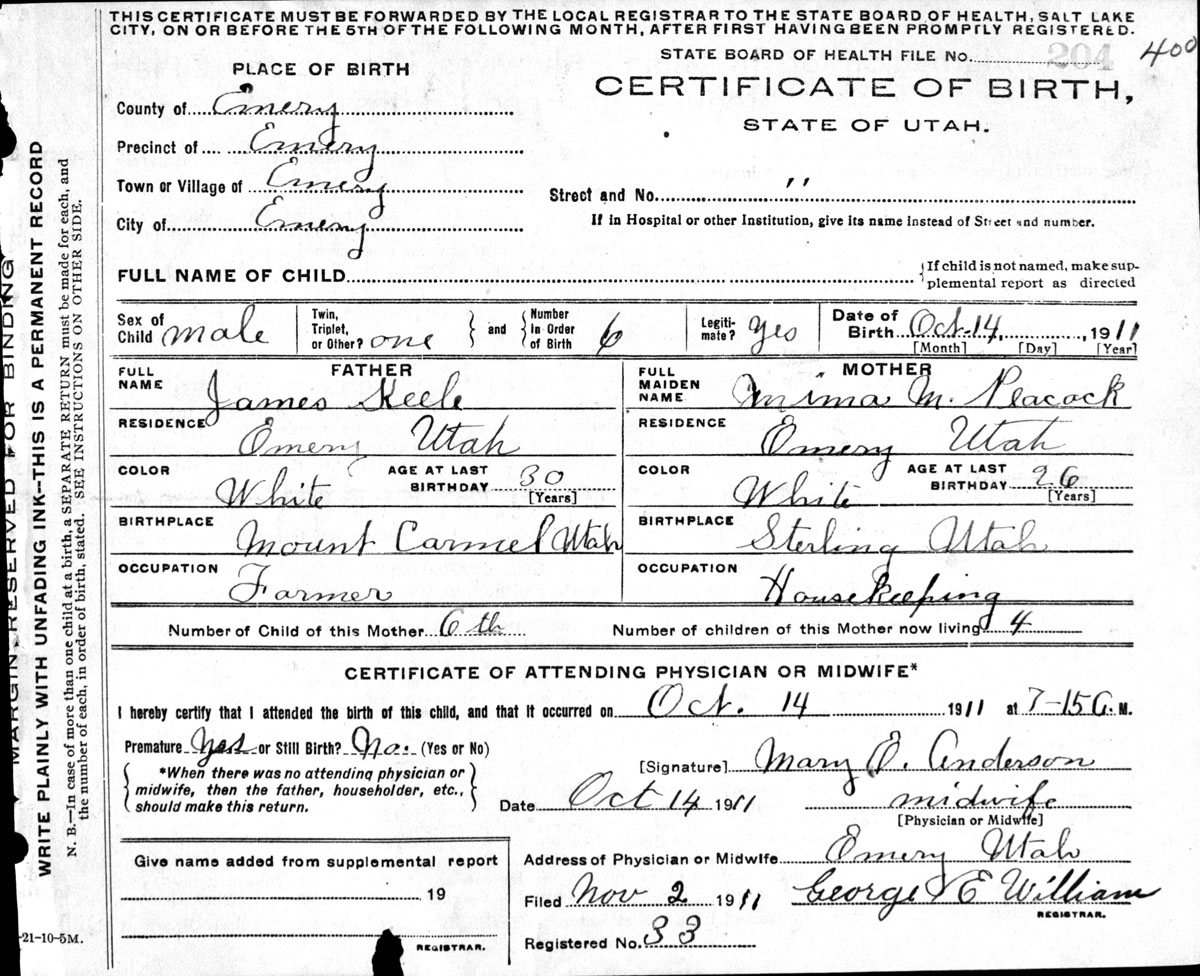 THIS CERTIFICATE MUST BE FORWARDED BY THE LOCAL REGISTRAR TO THE STATE BOARD OF HEALTH, SALT LAKE
CITY, ON OR BEFORE THE 5TH OF THE FOLLOWING MONTH, AFTER FIRST HAVING BEEN PROMPTLY REGISTERED.
STATE BOARD OF HEALTH FILE No. 204 400
PLACE OF BIRTH
CERTIFICATE OF BIRTH,
STATE OF UTAH.
County of Emery
Precinct of Emery
Town or Village of Emery
Street and No. "
City of Emery
If in Hospital or other Institution, give its name instead of Street and number.
FULL NAME OF CHILD
{If child is not named, make sup-
plemental report as directed
Sex of Child male
Twin, Triplet, or Other? one } and { Number in Order of Birth 6
Legiti-mate? Yes
Date of Birth Oct. 14, 1911
[Month] [Day] [Year]
FATHER
FULL NAME James Keele
RESIDENCE Emery Utah
COLOR White AGE AT LAST BIRTHDAY 30 [Years]
BIRTHPLACE Mount Carmel Utah
OCCUPATION Farmer
MOTHER
FULL MAIDEN NAME M. Peacock
RESIDENCE Emery Utah
COLOR White AGE AT LAST BIRTHDAY 26 [Years]
BIRTHPLACE Sterling Utah
OCCUPATION Housekeeping
Number of Child of this Mother 6th Number of children of this Mother now living 4
CERTIFICATE OF ATTENDING PHYSICIAN OR MIDWIFE*
I hereby certify that I attended the birth of this child, and that it occurred on Oct. 14 1911 at 7-15 A. M.
Premature Yes or Still Birth? No. (Yes or No)
{ *When there was no attending physician or
midwife, then the father, householder, etc.,
should make this return. }
[Signature] Mary E. Anderson
Date Oct 14 1911 midwife
[Physician or Midwife]
Give name added from supplemental report
19
REGISTRAR.
Address of Physician or Midwife Emery Utah
Filed Nov 2 1911 George E William
REGISTRAR.
Registered No. 33
-21-10-5M.
MARGIN RESERVED FOR BINDING
WRITE PLAINLY WITH UNFADING INK—THIS IS A PERMANENT RECORD
N. B.—In case of more than one child at a birth, a SEPARATE RETURN must be made for each, and
the number of each, in order of birth, stated. SEE INSTRUCTIONS ON OTHER SIDE.